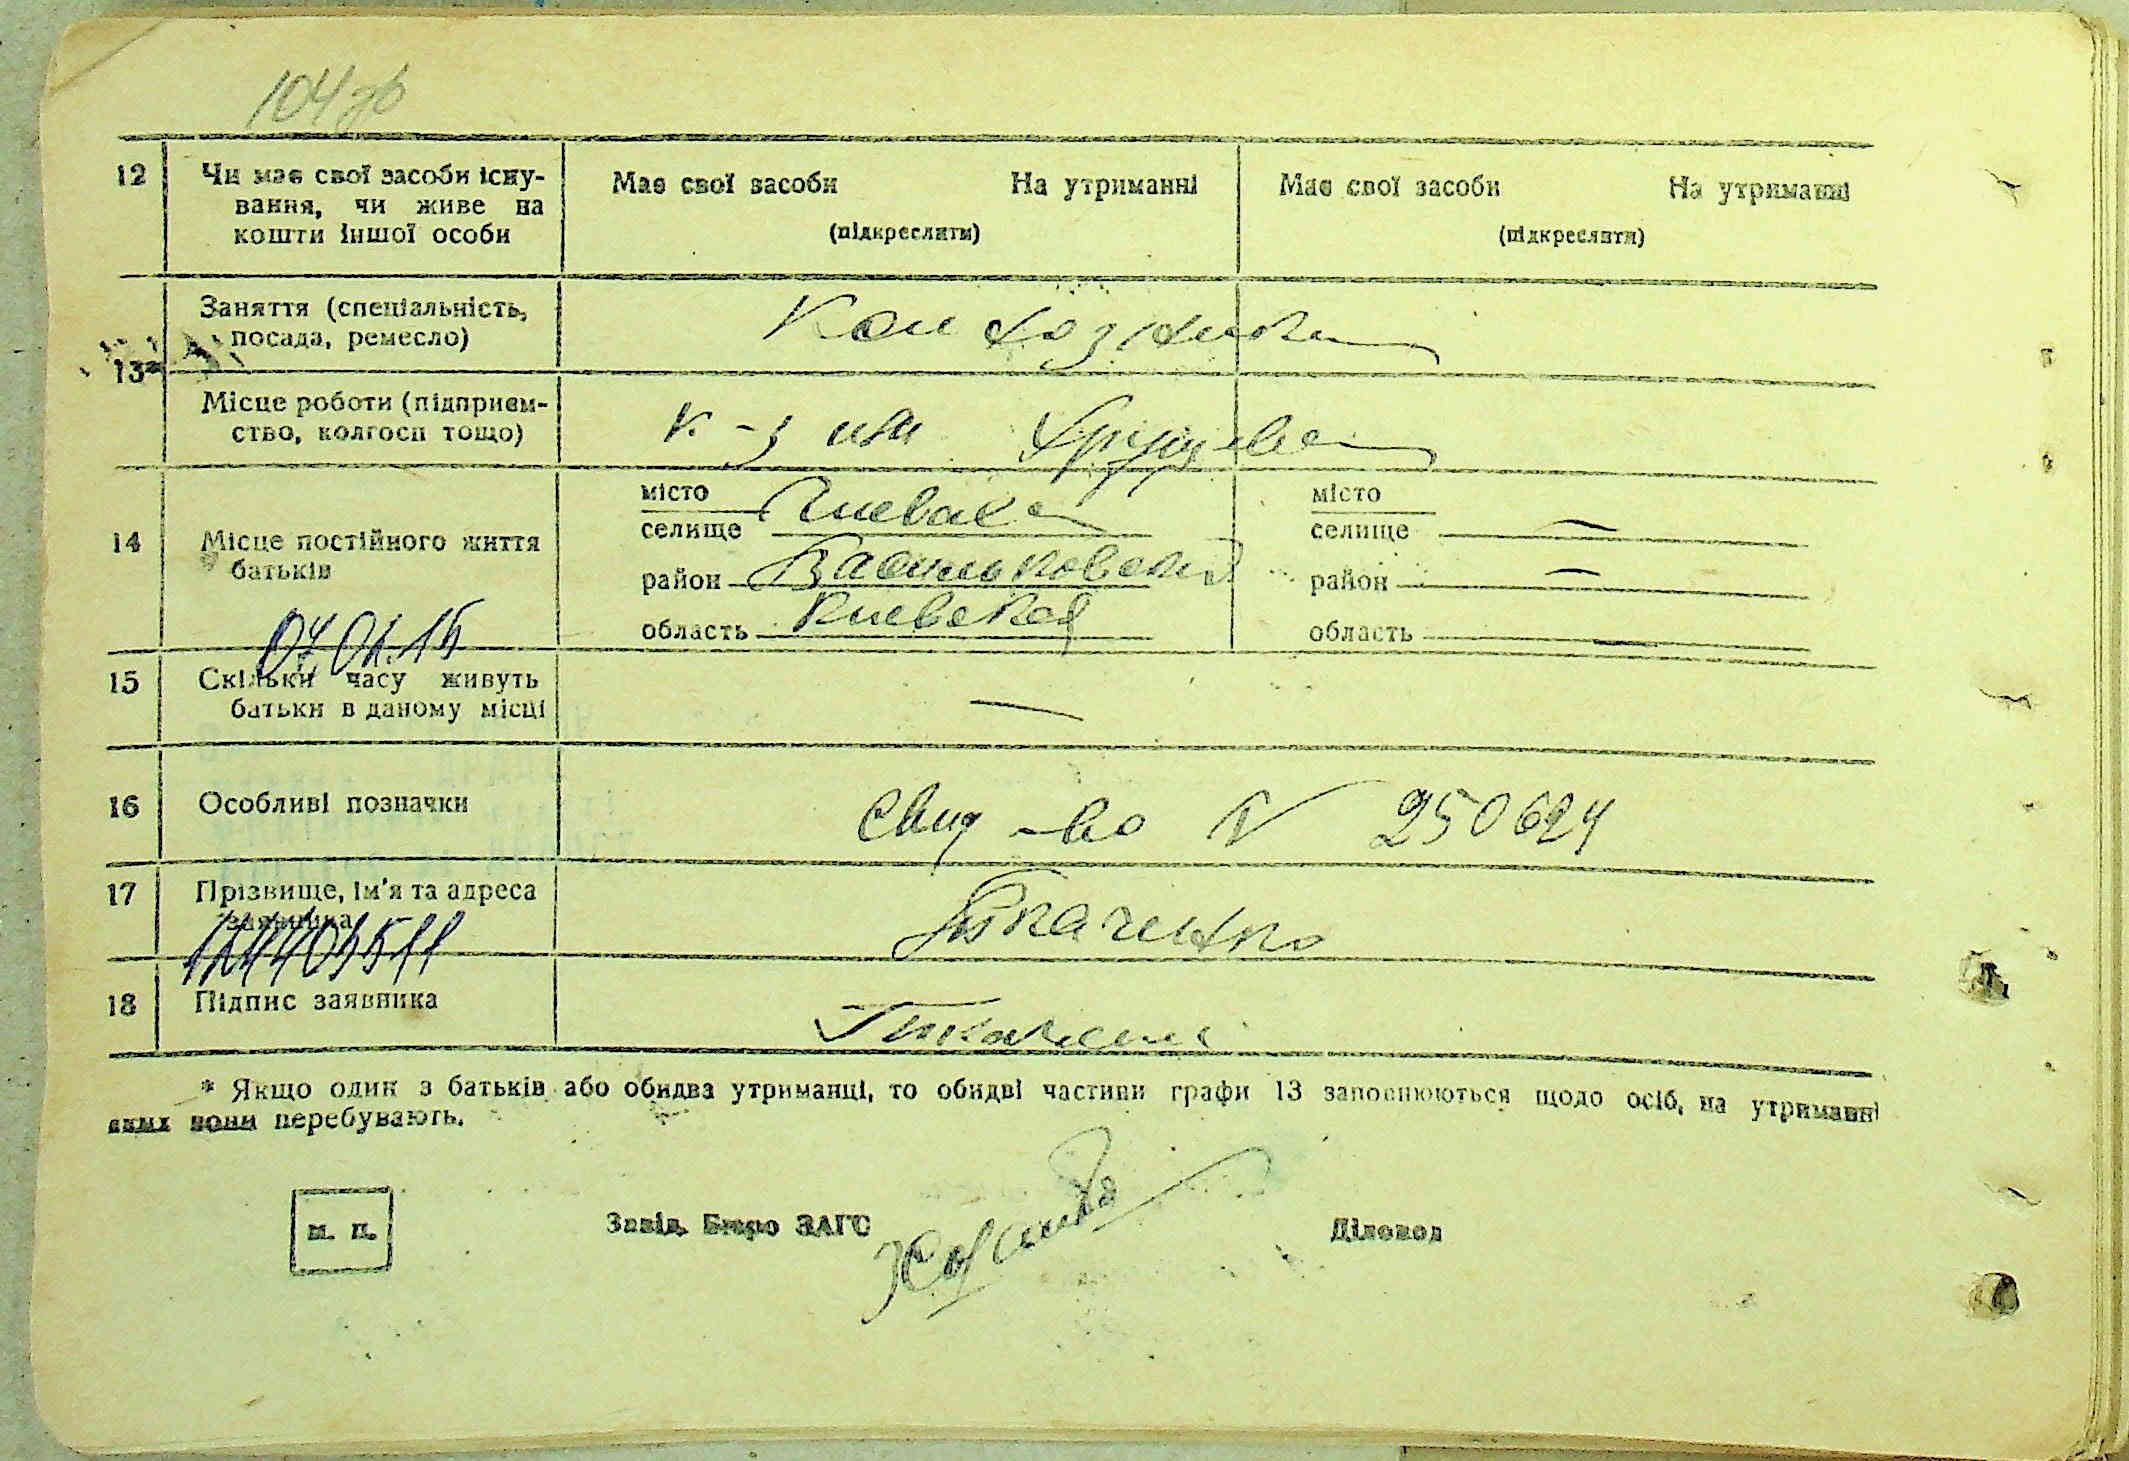 104 зв
12 Чи має свої засоби існу- Має свої засоби На утриманні Має свої засоби На утриманні
вання, чи живе на (підкреслити) (підкреслити)
кошти іншої особи
Заняття (спеціальність, Колхозники
посада, ремесло)
13*
Місце роботи (підприєм- к-з им Хрущева
ство, колгосп тощо)
14 Місце постійного життя батьків
місто
селище Глеваха
район Васильковский
область Киевская
місто
селище —
район —
область —
07.01.15
15 Скільки часу живуть —
батьки в даному місці
16 Особливі позначки Свид-во N 250624
17 Прізвище, ім'я та адреса Ткаченко
заявника
18 Підпис заявника Ткаченко
* Якщо один з батьків або обидва утриманці, то обидві частини графи 13 заповнюються щодо осіб, на утриманні
яких вони перебувають.
м. п. Завід. Бюро ЗАГС Діловод